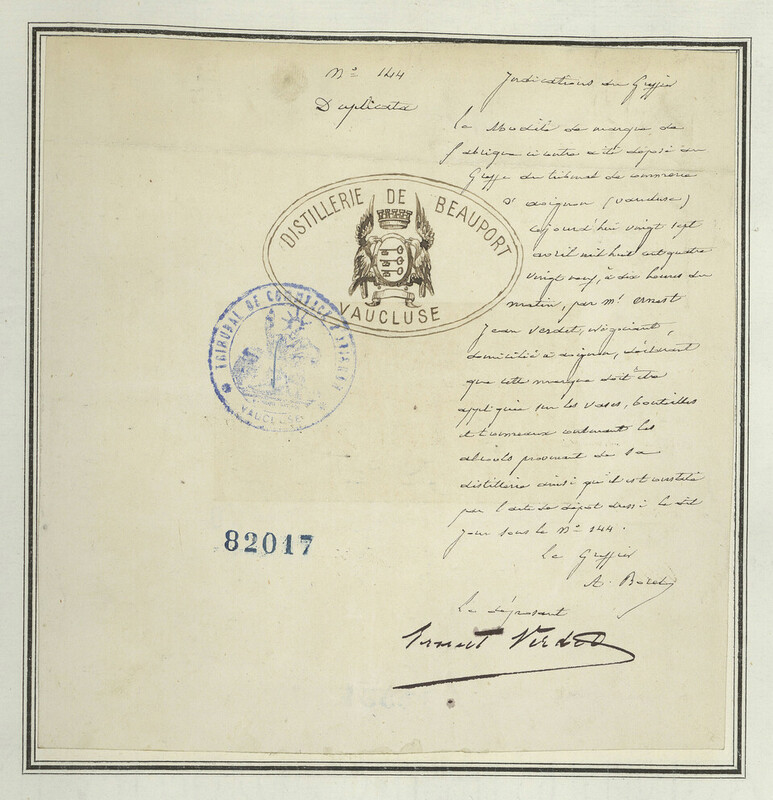 N° 144
Duplicata
DISTILLERIE DE BEAUPORT
VAUCLUSE
TRIBUNAL DE COMMERCE D'AVIGNON
VAUCLUSE
82017
Indications du Greffier
Le Modèle de marque de
fabrique ci contre a été déposé au
Greffe du tribunal de commerce
d'avignon (vaucluse)
aujourd'hui vingt sept
avril mil huit cent quatre
vingt neuf, à dix heures du
matin, par Mr. ernest
Jean Verdet, négociant,
domicilié à avignon, déclarant
que cette marque doit être
appliquée sur les vases, bouteilles
et tonneaux contenant les
alcools provenant de sa
distillerie ainsi qu'il est constaté
par l'acte de dépôt dressé le dit
jour sous le N° 144.
Le Greffier
A.
Le déposant
Ernest Verdet